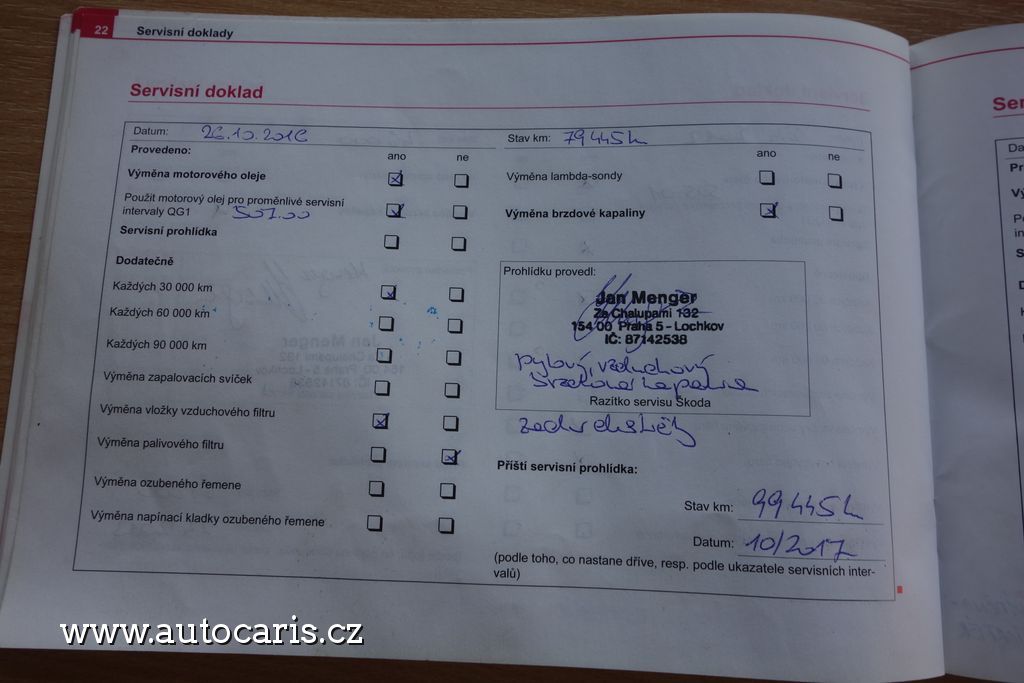 22 Servisní doklady
Servisní doklad
Datum: 26.10.2016
Stav km: 79445 km
Provedeno: ano ne
ano ne
Výměna motorového oleje
Výměna lambda-sondy
Použit motorový olej pro proměnlivé servisní
intervaly QG1 507.00
Výměna brzdové kapaliny
Servisní prohlídka
Dodatečně
Každých 30 000 km
Každých 60 000 km
Každých 90 000 km
Výměna zapalovacích svíček
Výměna vložky vzduchového filtru
Výměna palivového filtru
Výměna ozubeného řemene
Výměna napínací kladky ozubeného řemene
Prohlídku provedl:
Jan Menger
Za Chalupami 132
154 00 Praha 5 - Lochkov
IČ: 87142538
pylový, vzduchový
brzdová kapalina
Razítko servisu Škoda
zadní
Příští servisní prohlídka:
Stav km: 99445 km
Datum: 10/2017
(podle toho, co nastane dříve, resp. podle ukazatele servisních inter-
valů)
Ser
Da
Pr
Vý
in
S
www.autocaris.cz